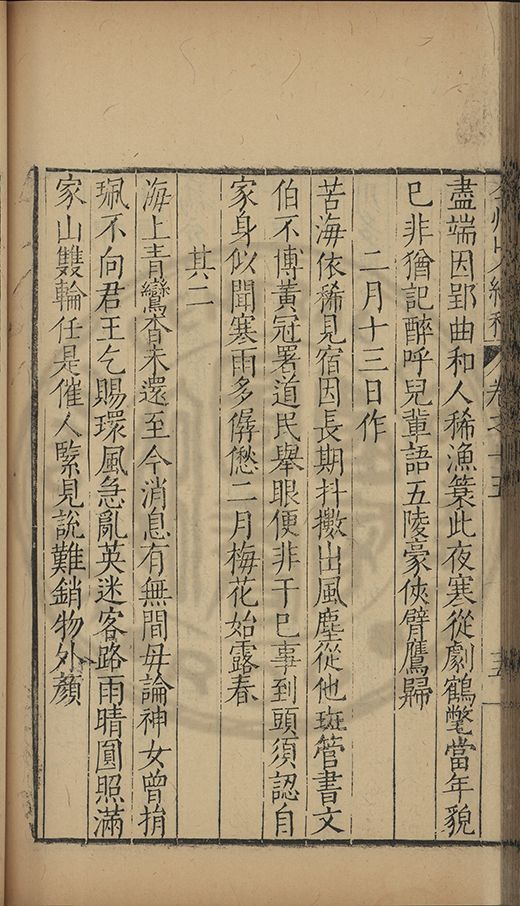 盡端因郢曲和人稀漁簑此夜寒從劇鶴氅當年貌
巳非猶記醉呼兒輩語五陵豪俠臂鷹歸
二月十三日作
苦海依稀見宿因長期抖擻出風塵從他斑管書文
伯不博黃冠署道民舉眼便非干巳事到頭須認自
家身似聞寒雨多僝僽二月梅花始露春
其二
海上青鸞杳未還至今消息有無間毋論神女曾捐
珮不向君王乞賜環風急亂英迷客路雨晴圓照滿
家山雙輪任是催人緊見說難銷物外顏